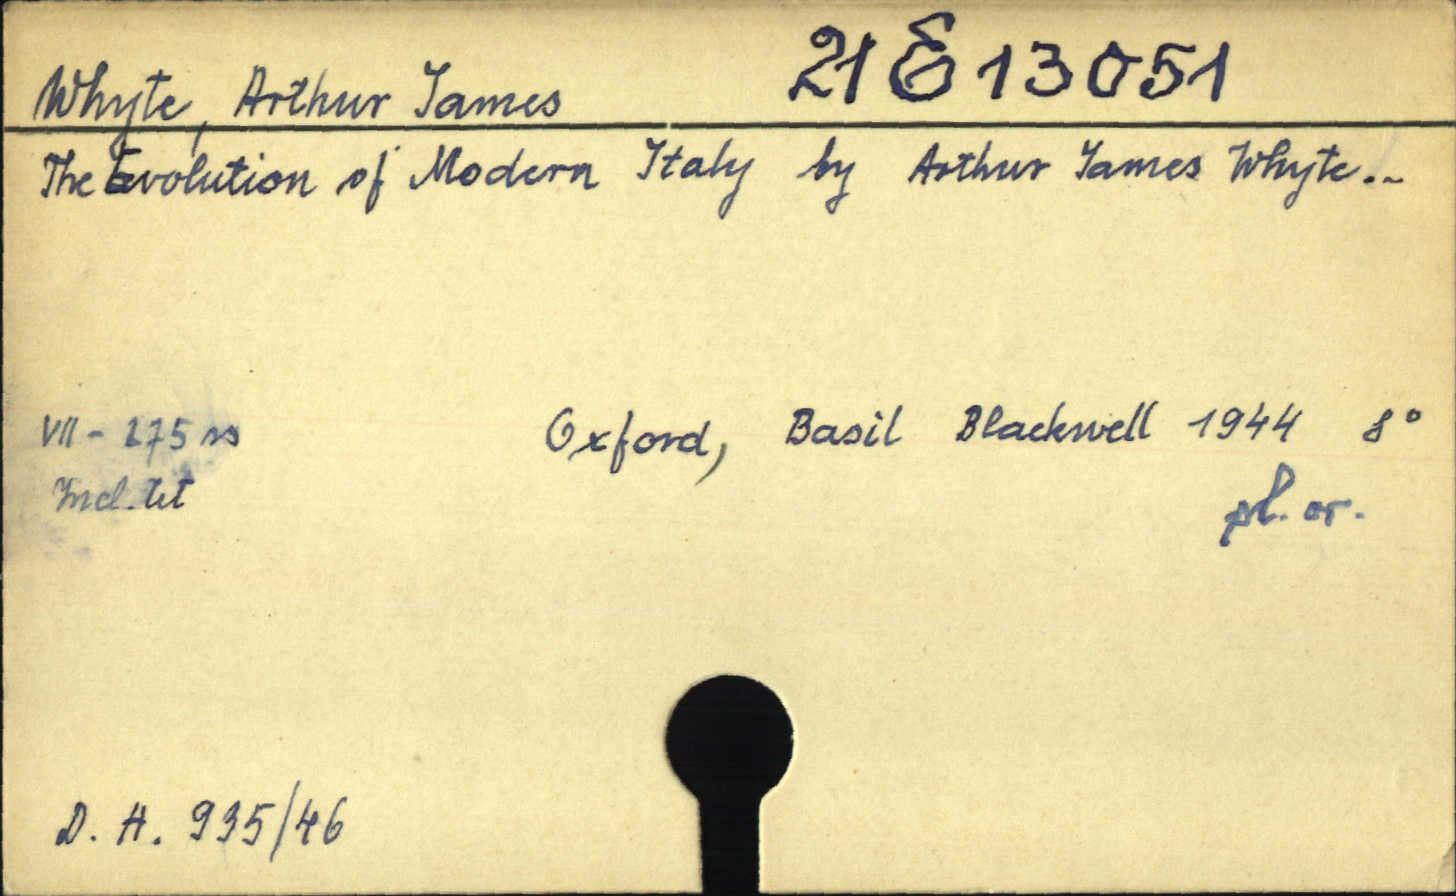 21 E 13051
Whyte, Arthur James
The Evolution of Modern Italy by Arthur James Whyte..
VII - 275 ss
Oxford, Basil Blackwell 1944 8°
Incl. tit
pł. or.
D. H. 935/46